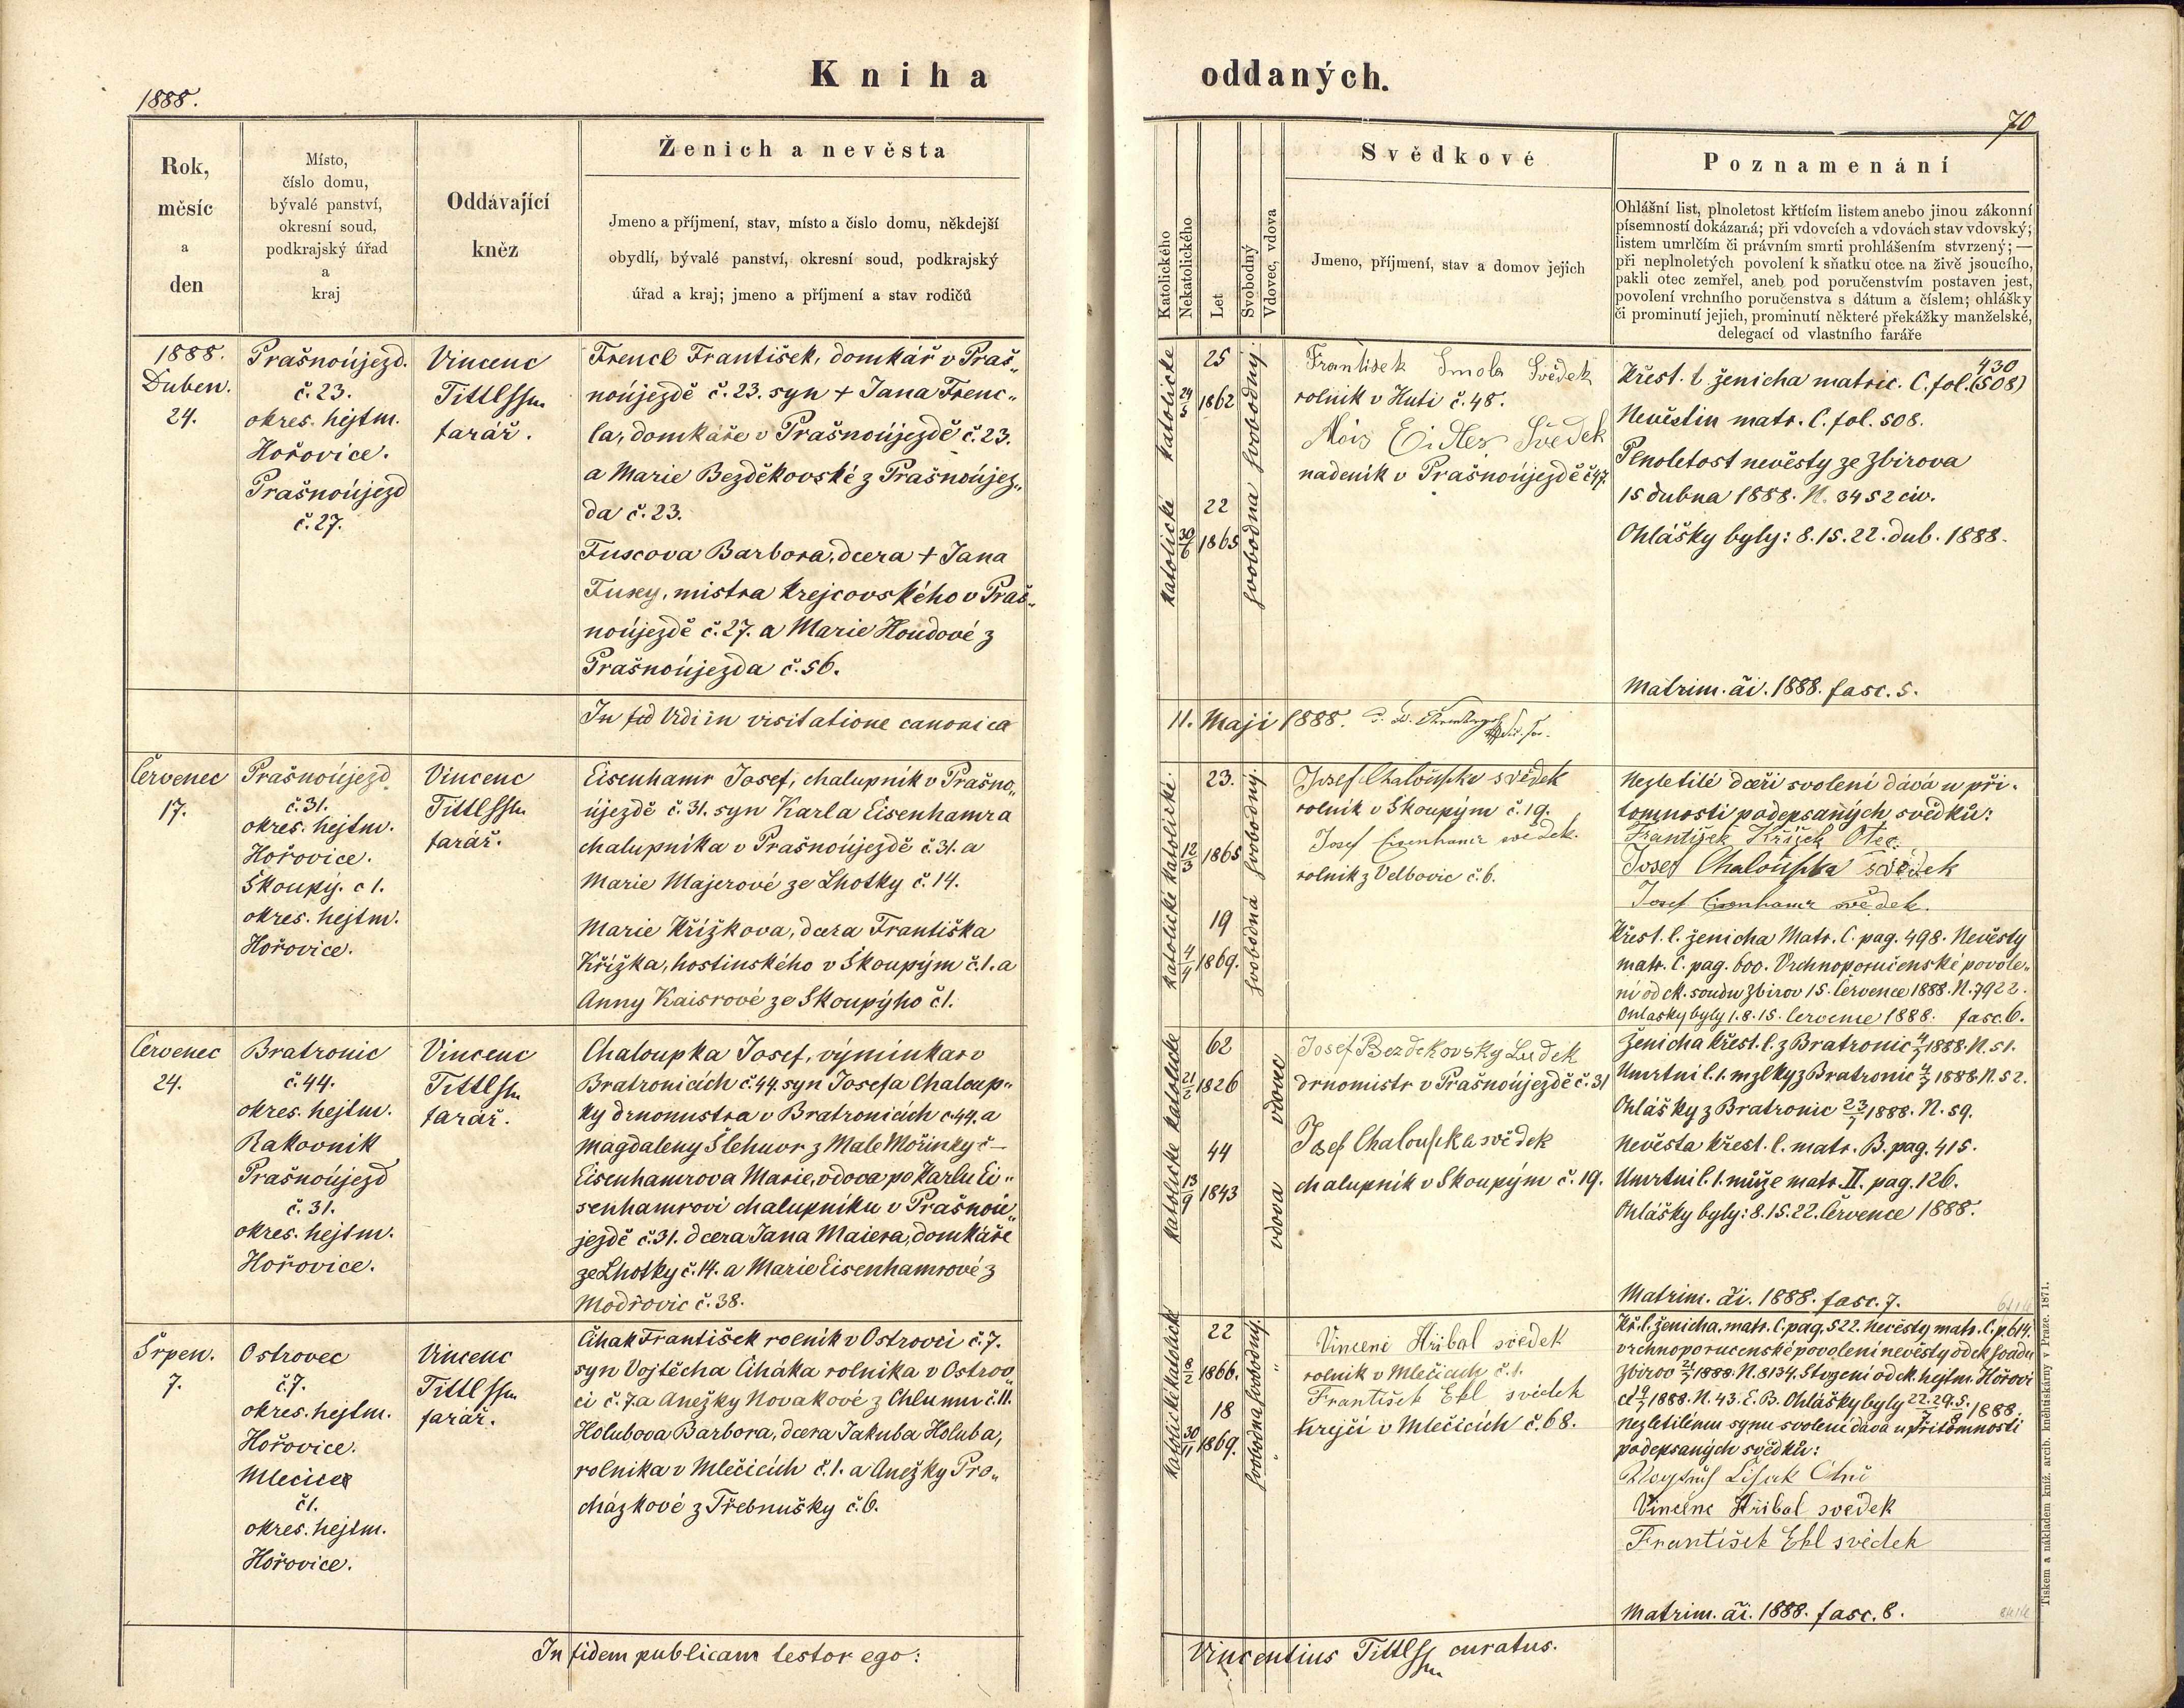 Kniha oddaných.
1888.
70
Rok,
měsíc
a
den
Místo,
číslo domu,
bývalé panství,
okresní soud,
podkrajský úřad
a
kraj
Oddávající
kněz
Ženich a nevěsta
Jmeno a příjmení, stav, místo a číslo domu, někdejší
obydlí, bývalé panství, okresní soud, podkrajský
úřad a kraj; jmeno a příjmení a stav rodičů
Katolického
Nekatolického
Let
Svobodný
Vdovec, vdova
Svědkové
Jmeno, příjmení, stav a domov jejich
Poznamenání
Ohlášní list, plnoletost křtícím listem anebo jinou zákonní
písemností dokázaná; při vdovcích a vdovách stav vdovský;
listem umrlčím či právním smrti prohlášením stvrzený; —
při neplnoletých povolení k sňatku otce na živě jsoucího,
pakli otec zemřel, aneb pod poručenstvím postaven jest,
povolení vrchního poručenstva s dátum a číslem; ohlášky
či prominutí jejich, prominutí některé překážky manželské,
delegací od vlastního faráře
1888.
Duben.
24.
Prašnoújezd.
č. 23.
okres. hejtm.
Hořovice.
Prašnoújezd
č. 27.
Vincenc
Tittl
farář.
Frencl František, domkář v Praš„
noújezdě č. 23. syn + Jana Frenc„
la, domkáře v Prašnoújezdě č. 23.
a Marie Bezděkovské z Prašnoújez„
da č. 23.
Fuxova Barbora, dcera + Jana
Fuxy, mistra krejcovského v Praš„
noújezdě č. 27. a Marie Houdové z
Prašnoújezda č. 56.
katolické
24/5
25
1862
svobodný
katolické
30/6
22
1865
svobodna
František Smola Svědek
rolník v Huti č. 48.
Alois Eidles Svědek
nadeník v Prašnoújezdě č 47.
430
Křest. l. ženicha matric. C. fol. (508)
Nevěstin matr. C. fol. 508.
Plnoletost nevěsty ze Zbirova
15 dubna 1888. N. 3452 civ.
Ohlášky byly: 8. 15. 22. dub. 1888.
Matrim. ai. 1888. fasc. 5.
Vidi in visitatione canonica
11. Maji 1888.
Červenec
17.
Prašnoújezd
č. 31.
okres. hejtm.
Hořovice.
Skoupý. č 1.
okres. hejtm.
Hořovice.
Vincenc
Tittl
farář.
Eisenhamr Josef, chalupník v Prašno„
újezdě č. 31. syn Karla Eisenhamra
chalupníka v Prašnoújezdě č. 31. a
Marie Majerové ze Lhotky č. 14.
Marie Křížkova, dcera Františka
Křížka, hostinského v Skoupým č. 1. a
Anny Kaisrové ze Skoupýho č 1.
katolické
12/3
23.
1865
svobodný
katolické
4/4
19
1869.
svobodná
Josef Chaloupka svědek
rolník v Skoupým č. 19.
Josef Eisenhamr svědek.
rolník z Velbovic č. 6.
Nezletilé dceři svolení dává u při„
tomnosti podepsaných svědků:
František Křížek Otec.
Josef Chaloupka svědek
Josef Eisenhamr svědek.
Křest. l. ženicha Matr. C. pag. 498. Nevěsty
matr. C. pag. 600. Vrchnoporučenské povole„
ní od ck. soudu Zbirov 15. Července 1888. N. 7922.
Ohlášky byly 1. 8. 15. července 1888. fasc. 6.
Červenec
24.
Bratronic
č. 44.
okres. hejtm.
Rakovník
Prašnoújezd
č. 31.
okres. hejtm.
Hořovice.
Vincenc
Tittl
farář.
Chaloupka Josef, výminkar v
Bratronicích č. 44. syn Josefa Chaloup„
ky drnomistra v Bratronicích č. 44. a
Magdaleny Šlehuvr z Malé Mořinky č —
Eisenhamrova Marie, vdova po Karlu Ei„
senhamrovi chalupníku v Prašnoú„
jezdě č. 31. dcera Jana Maiera, domkáře
ze Lhotky č. 14. a Marie Eisenhamrové z
Modřovic č. 38.
katolické
21/2
62
1826
vdovec
katolické
44
1843
vdova
Josef Bezděkovský
drnomistr v Prašnoújezdě č. 31
Josef Chaloupka svědek
chalupník v Skoupým č. 19.
Ženicha křest. l. z Bratronic 4/7 1888. N. 51.
Umrtní l. 1. mzlky z Bratronic 4/7 1888. N. 52.
Ohlášky z Bratronic 23/7 1888. N. 59.
Nevěsta křest. l. matr. B. pag. 415.
Umrtní l. 1. muže matr. II. pag. 126.
Ohlášky byly: 8. 15. 22. července 1888.
Matrim. ai. 1888. fasc. 7.
Srpen.
7.
Ostrovec
č. 7.
okres. hejtm.
Hořovice.
Mlečice
č 1.
okres. hejtm.
Hořovice.
Vincenc
Tittl
farář.
Čihak František rolník v Ostrovci č. 7.
syn Vojtěcha Čiháka rolníka v Ostrov„
ci č. 7. a Anežky Novakové z Chlumu č. 11.
Holubova Barbora, dcera Jakuba Holuba,
rolníka v Mlečicích č. 1. a Anežky Pro„
cházkové z Třebnušky č. 6.
katolické
22
1866.
svobodný
katolické
30/11
18
1869.
svobodna
Vincenc Hřibal svědek
rolník v Mlečicích č. 1.
František Ebl svědek
krejčí v Mlečicích č. 68.
Kř. l. ženicha, matr. C. pag. 522. Nevěsty matr. C. p. 614.
vrchnoporučenské povolení nevěsty od ck soudu
Zbirov 21/7 1888. N. 8134. Stvrzení od ck. hejtm. Hořovi
1888. N. 43. E. B. Ohlášky byly 22. 29. 5. 1888.
Nezletilému synu svolení dává u přítomnosti
podepsaných svědků:
Vincenc Hřibal svědek
František Ebl svědek
Matrim. ai. 1888. fasc. 8.
In fidem publicam testor ego:
Vincentius Tittl curatus.
Tiskem a nákladem kníž. arcib. knihtiskárny v Praze. 1871.